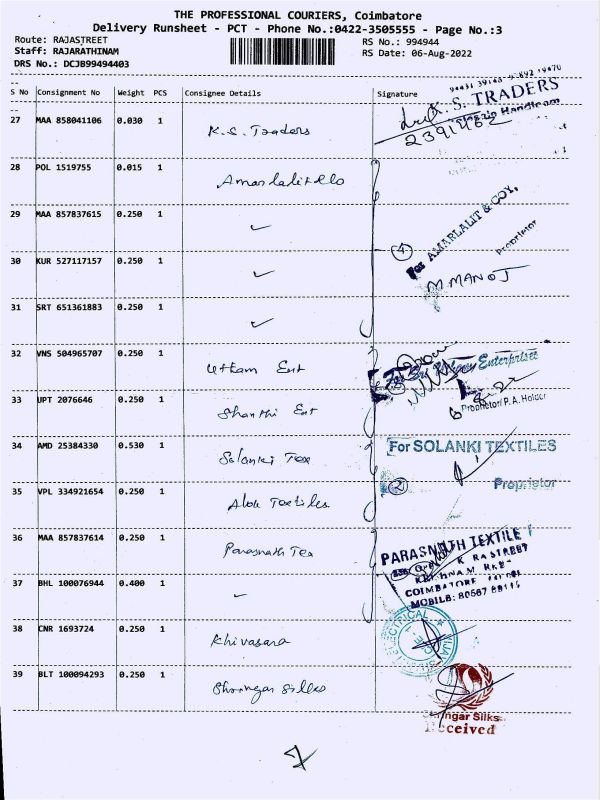 THE PROFESSIONAL COURIERS, Coimbatore
Delivery Runsheet - PCT - Phone No.:0422-3505555 - Page No.:3
Route: RAJASTREET RS No.: 994944
Staff: RAJARATHINAM RS Date: 06-Aug-2022
DRS No.: DCJB99494403
S No Consignment No Weight PCS Consignee Details Signature
27 MAA 858041106 0.030 1 K.S. Traders K.S. TRADERS
2391462
28 POL 1519755 0.015 1
29 MAA 857837615 0.250 1 ✓ For AMARLALIT & COY,
4 Proprietor
30 KUR 527117157 0.250 1 ✓ M MANOJ
31 SRT 651361883 0.250 1 ✓
32 VNS 504965707 0.250 1 Uttam Ent For Sri Uttam Enterprises
33 UPT 2076646 0.250 1 Shanthi Ent Proprietor/ P.A. Holder
34 AMD 25384330 0.530 1 Solanki Tex For SOLANKI TEXTILES
35 VPL 334921654 0.250 1 Alok Textiles 2 Proprietor
36 MAA 857837614 0.250 1 Parasnath Tex PARASNATH TEXTILE
COIMBATORE
37 BHL 100076944 0.400 1 ✓ MOBILE:
38 CNR 1693724 0.250 1 Khivasara ELECTRICAL
39 BLT 100094293 0.250 1 Shringar Silks Shringar Silks
Received